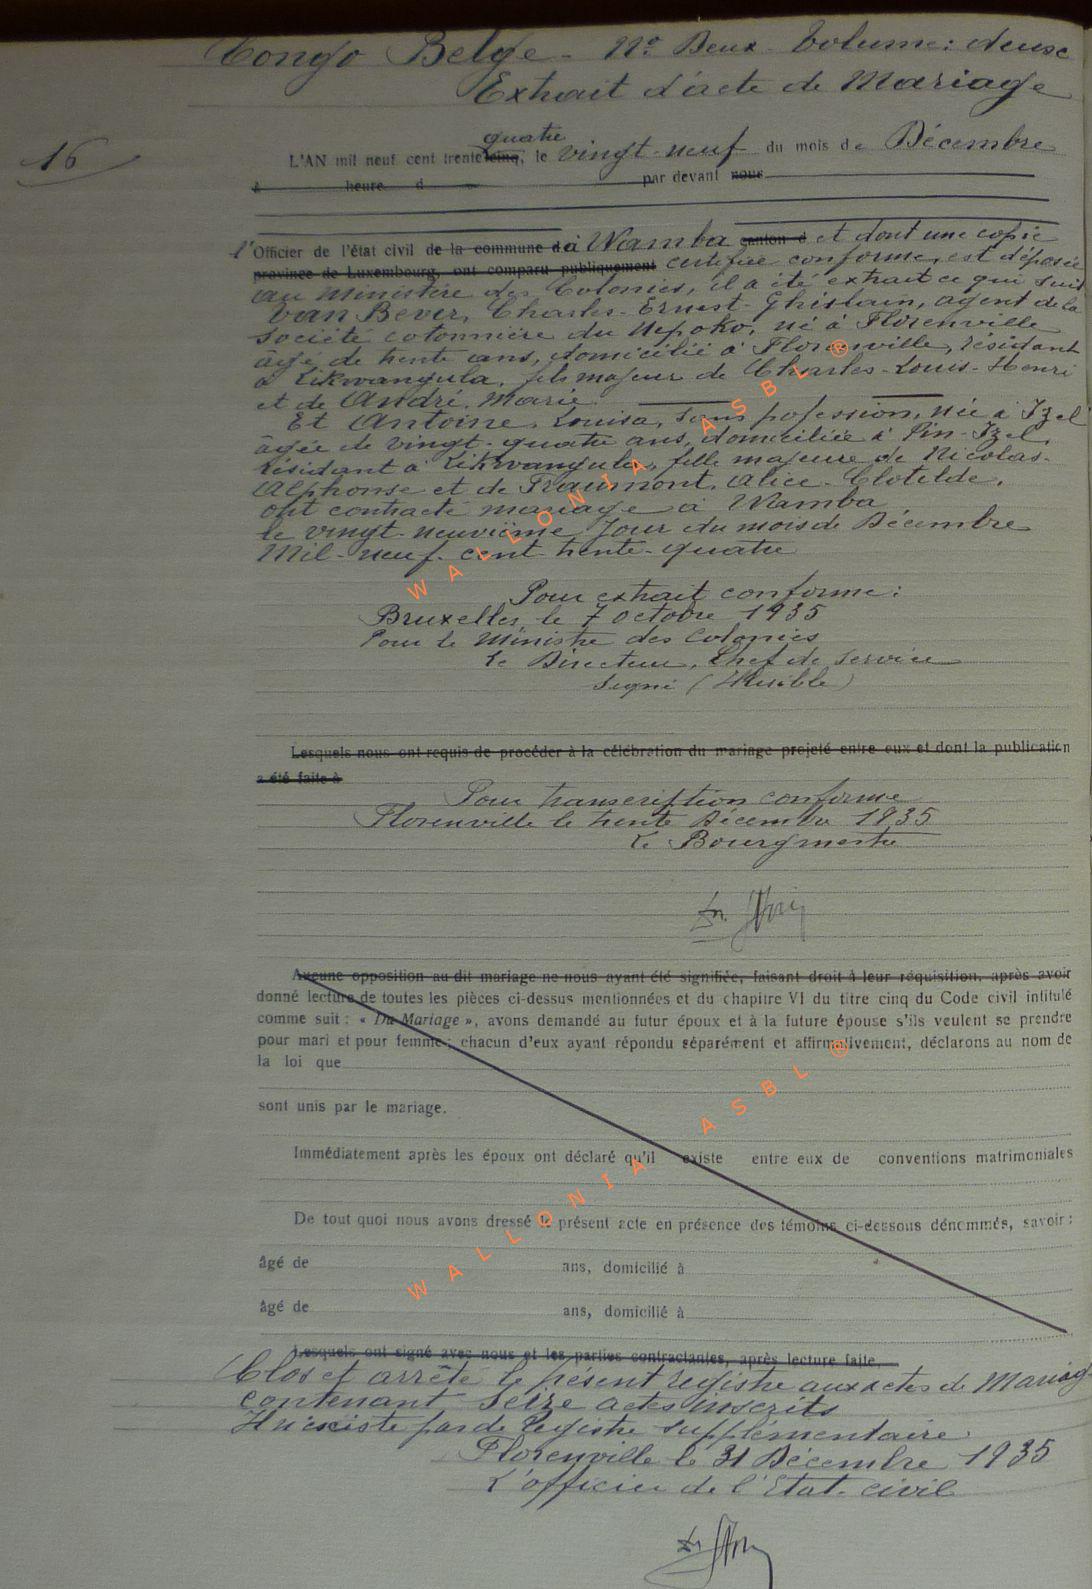 Congo Belge - N° Deux - Volume: deuse
Extrait d'acte de Mariage
quatre
16
L'AN mil neuf cent trente cinq, le vingt-neuf du mois de Décembre
à heure d par devant nous
l'Officier de l'état civil de la commune de à Wamba canton d et dont une copie
province de Luxembourg, ont comparu publiquement certifiée conforme, est déposée
au Ministère des Colonies, il a été extrait ce qui suit
Van Bever, Charles-Ernest-Ghislain, agent de la
société cotonnière du Nepoko, né à Florenville
âgé de trente ans, domicilié à Florenville, résidant
à Likwangula, fils majeur de Charles-Louis-Henri
et de André, Marie.
Et Antoine, Louisa, sans pofession, née à Izel
âgée de vingt-quatre ans, domiciliée à Pin-Izel,
résidant à Likwangula, fille majeure de Nicolas-
Alphonse et de Fraumont, Alice-Clotilde,
ont contracté mariage à Wamba
le vingt-neuvième Jour du mois de Décembre
Mil-neuf-cent-trente-quatre
Pour extrait conforme:
Bruxelles, le 7 octobre 1935
Pour le Ministre des Colonies
Le Directeur, Chef de service
Signé (Illisible)
Lesquels nous ont requis de procéder à la célébration du mariage projeté entre eux et dont la publication
a été faite à
Pour transcription conforme
Florenville le trente Décembre 1935
Le Bourgmestre
Aucune opposition au dit mariage ne nous ayant été signifiée, faisant droit à leur réquisition, après avoir
donné lecture de toutes les pièces ci-dessus mentionnées et du chapitre VI du titre cinq du Code civil intitulé
comme suit : « Du Mariage », avons demandé au futur époux et à la future épouse s'ils veulent se prendre
pour mari et pour femme ; chacun d'eux ayant répondu séparément et affirmativement, déclarons au nom de
la loi que
sont unis par le mariage.
Immédiatement après les époux ont déclaré qu'il existe entre eux de conventions matrimoniales
De tout quoi nous avons dressé le présent acte en présence des témoins ci-dessous dénommés, savoir :
âgé de ans, domicilié à
âgé de ans, domicilié à
Lesquels ont signé avec nous et les parties contractantes, après lecture faite.
Clos et arrêté le présent registre aux actes de Mariage
contenant seize actes inscrits
Il n'existe pas de Registre supplémentaire
Florenville le 31 Décembre 1935
L'officier de l'Etat-civil
WALLONIA ASBL ®
WALLONIA ASBL ®